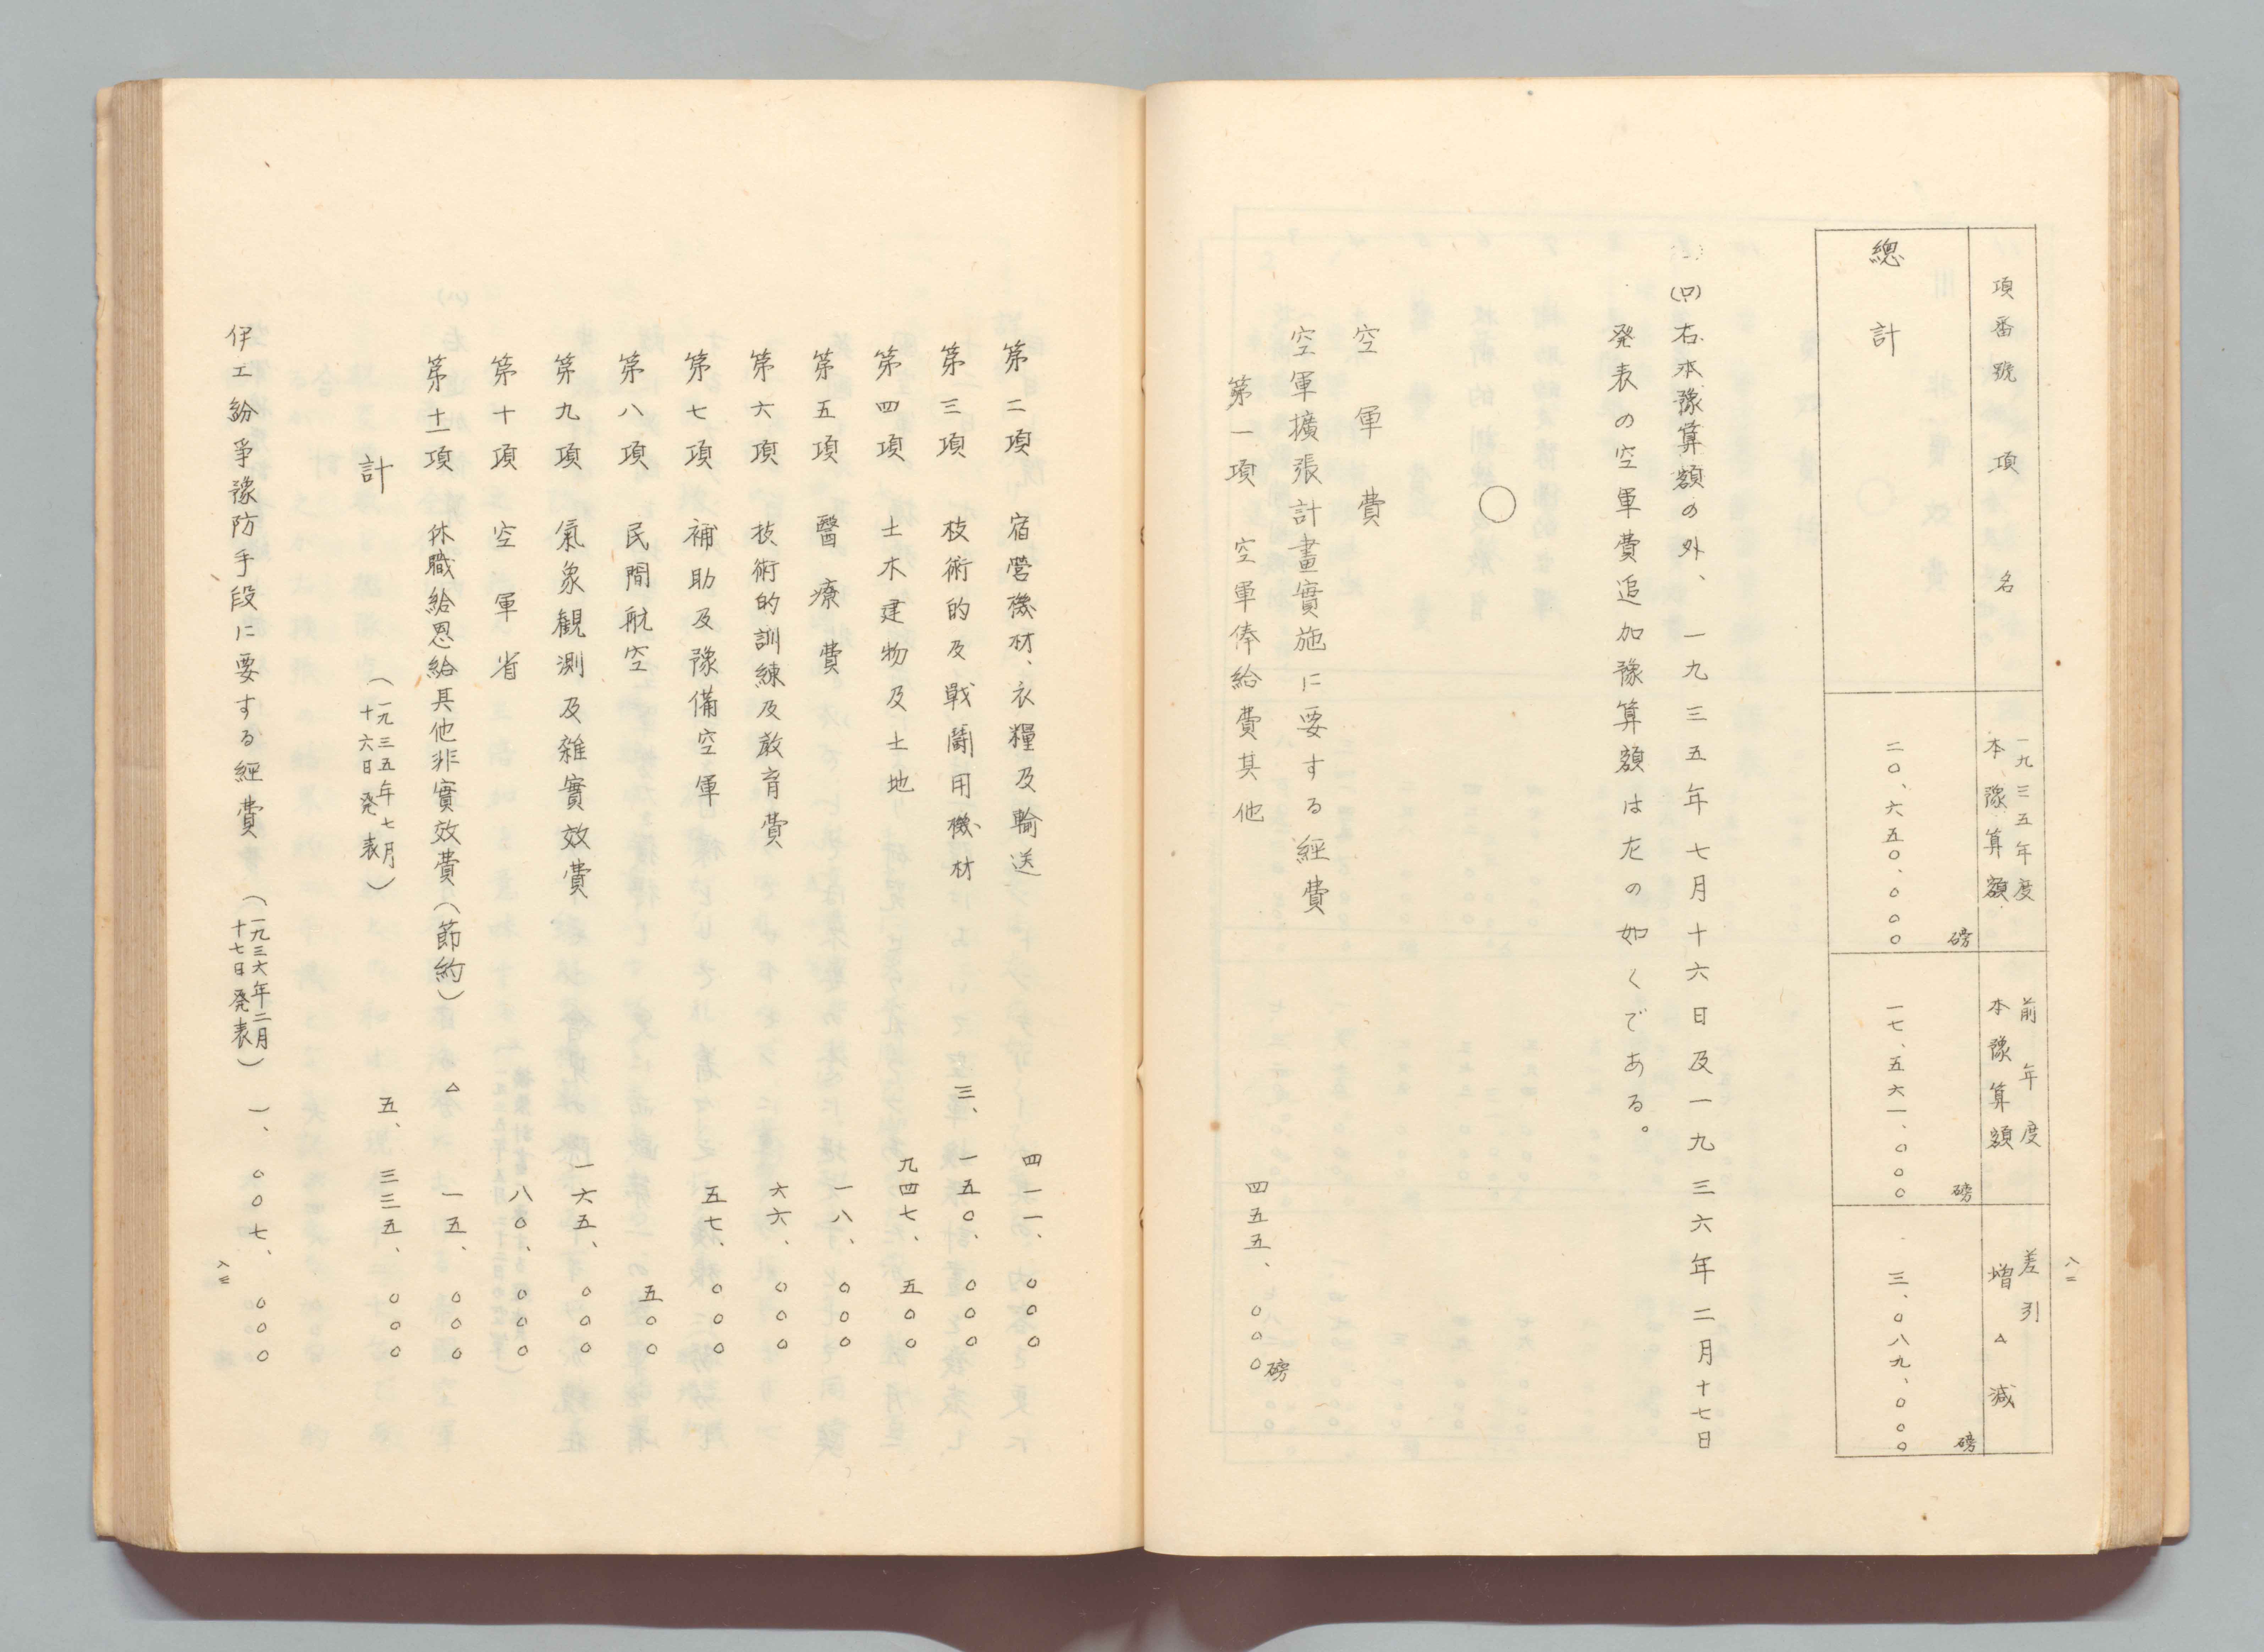 八二
項番號 項名
一九三五年度本豫算額
前年度本豫算額
差引增△減
總計
二〇、六五〇、〇〇〇磅
一七、五六一、〇〇〇磅
三、〇八九、〇〇〇磅
(ロ) 右本豫算額の外、一九三五年七月十六日及一九三六年二月十七日
発表の空軍費追加豫算額は左の如くである。
〇
空軍費
空軍擴張計畫實施に要する經費
第一項 空軍俸給費其他 四五五、〇〇〇磅
第二項 宿營機材、衣糧及輸送 四一一、〇〇〇
第三項 技術的及戰鬪用機材 三、一五〇、〇〇〇
第四項 土木建物及土地 九四七、五〇〇
第五項 醫療費 一八、〇〇〇
第六項 技術的訓練及敎育費 六六、〇〇〇
第七項 補助及豫備空軍 五七、〇〇〇
第八項 民間航空 五〇〇
第九項 氣象觀測及雜實效費 一六五、〇〇〇
第十項 空軍省 八〇、〇〇〇
第十一項 休職給恩給其他非實效費(節約) △ 一五、〇〇〇
計 (一九三五年七月十六日発表) 五、三三五、〇〇〇
伊エ紛爭豫防手段に要する經費 (一九三六年二月十七日発表) 一、〇〇七、〇〇〇
八三